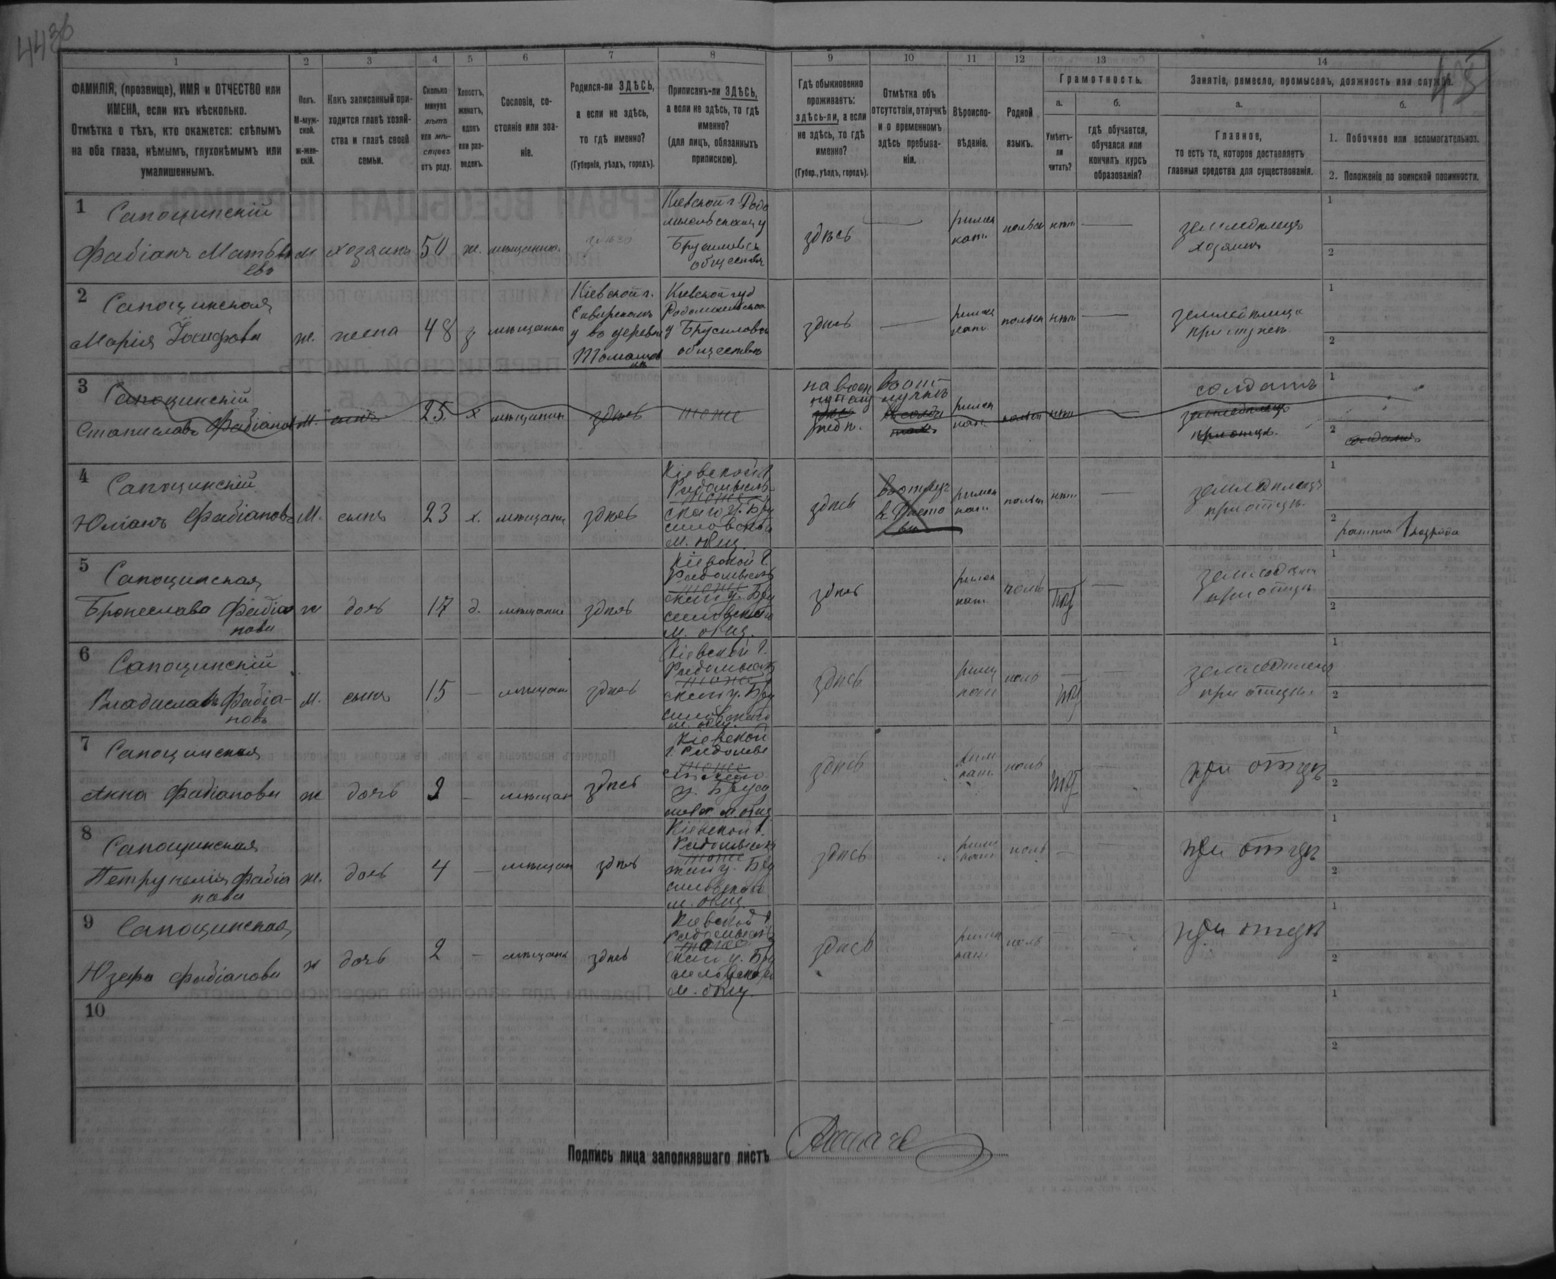 1 2 3 4 5 6 7 8 9 10 11 12 13 14
ФАМИЛІЯ, (прозвище), ИМЯ и ОТЧЕСТВО или
ИМЕНА, если ихъ нѣсколько.
Отмѣтка о тѣхъ, кто окажется: слѣпымъ
на оба глаза, нѣмымъ, глухонѣмымъ или
умалишеннымъ.
Полъ.
М-муж-
ской.
ж-жен-
скій.
Какъ записанный при-
ходится главѣ хозяй-
ства и главѣ своей
семьи.
Сколько
минуло
лѣтъ
или мѣ-
сяцевъ
отъ роду.
Холостъ,
женатъ,
вдовъ
или раз-
веденъ.
Сословіе, со-
стояніе или зва-
ніе.
Родился-ли ЗДѢСЬ,
а если не здѣсь,
то гдѣ именно?
(Губернія, уѣздъ, городъ).
Приписанъ-ли ЗДѢСЬ,
а если не здѣсь, то гдѣ
именно?
(для лицъ, обязанныхъ
припискою).
Гдѣ обыкновенно
проживаетъ:
здѣсь-ли, а если
не здѣсь, то гдѣ
именно?
(Губер., уѣздъ, городъ).
Отмѣтка объ
отсутствіи, отлучкѣ
и о временномъ
здѣсь пребыва-
ніи.
Вѣроиспо-
вѣданіе.
Родной
языкъ.
Грамотность.
а.
Умѣетъ-
ли
читать?
б.
гдѣ обучается,
обучался или
кончилъ курсъ
образованія?
Занятіе, ремесло, промыселъ, должность или служба.
а.
Главное,
то есть то, которое доставляетъ
главныя средства для существованія.
б.
1. Побочное или вспомогательное.
2. Положеніе по воинской повинности.
1 Сапоцинскій
Фабіанъ Матвѣ
евъ
м хозяинъ 50 ж. мѣщанинъ
Кіевской г. Радо
мысльскаго у
Брусиловск
общества
здѣсь — римск
кат. польск нѣтъ
земледѣлецъ
хозяинъ
1
2
2 Сапоцинская
Марія Іосифова
ж. жена 48 з мѣщанка
Кіевской г.
Сквирскаго
у во деревнѣ
Кіевской губ
Радомысльскаго
у Брусиловск
общества
здѣсь — римск
кат. польск нѣтъ —
земледѣлица
при мужѣ
1
2
3 Сапоцинскій
Станиславъ Фабіановъ
м. сынъ 25 х мѣщанинъ здѣсь тоже
римск
кат. польск нѣтъ
солдатъ
земледѣлецъ
при отцѣ
1
2
4 Сапоцинскій
Юліанъ Фабіановъ
м. сынъ 23 х. мѣщанин здѣсь
Кіевской г.
Радомысль
тоже
скаго у. Бру
силовскаго
м. общ.
здѣсь римск
кат. польск нѣтъ —
земледѣлецъ
при отцѣ
1
2 ратник 1 разряда
5 Сапоцинская
Брониславa Фабіа
нова
ж дочь 17 д. мѣщанка здѣсь
Кіевской г.
Радомысль
тоже
скаго у. Бру
силовскаго
м. общ.
здѣсь римск
кат. поль —
при отцѣ
1
2
6 Сапоцинскій
Владиславъ Фабіа-
новъ
м. сынъ 15 — мѣщан здѣсь
Кіевской г.
Радомысль
тоже
скаго у. Бру
силовскаго
м. общ.
здѣсь римск
кат. поль —
земледѣлецъ
при отцѣ
1
2
7 Сапоцинская
Анна Фабіанова
ж дочь 9 — мѣщан здѣсь
Кіевской
г Радомы
тоже
здѣсь римск
кат. поль —
при отцѣ
1
2
8 Сапоцинская
Петрунелія Фабіа
нова
ж. дочь 4 — мѣщан здѣсь
Кіевской г.
Радомысль
тоже
скаго у. Бру
силовскаго
м. общ.
здѣсь римск
кат. поль — —
при отцѣ
1
2
9 Сапоцинская
Юзефа Фабіанова
ж дочь 2 — мѣщан здѣсь
Кіевской г
Радомысль
тоже
скаго у. Бру
силовскаго
м. общ
здѣсь римск
кат. поль — —
при отцѣ
1
2
10
1
2
Подпись лица заполнявшаго листъ